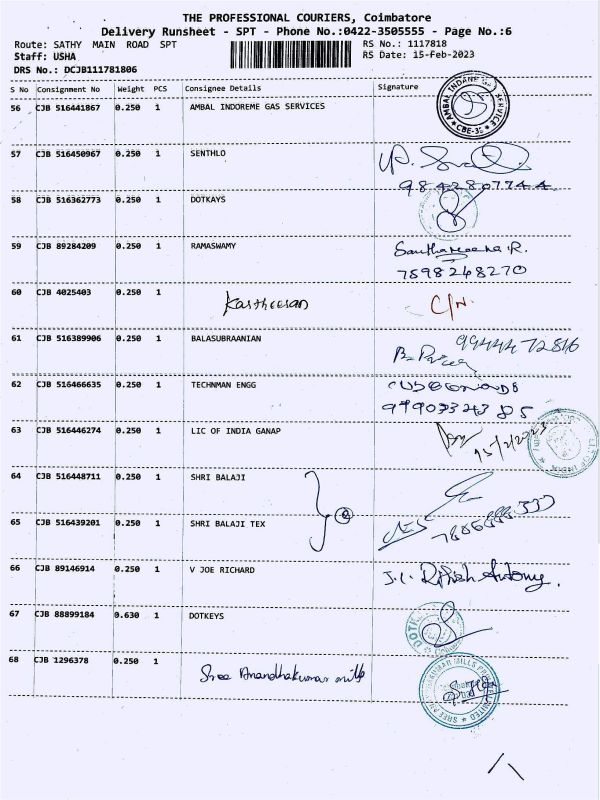 THE PROFESSIONAL COURIERS, Coimbatore
Delivery Runsheet - SPT - Phone No.:0422-3505555 - Page No.:6
Route: SATHY MAIN ROAD SPT
RS No.: 1117818
Staff: USHA
RS Date: 15-Feb-2023
DRS No.: DCJB111781806
S No Consignment No Weight PCS Consignee Details Signature
56 CJB 516441867 0.250 1 AMBAL INDOREME GAS SERVICES
AMBAL INDANE SERVICE CBE-35
57 CJB 516450967 0.250 1 SENTHLO
9842807744
58 CJB 516362773 0.250 1 DOTKAYS
59 CJB 89284209 0.250 1 RAMASWAMY
R.
7598248270
60 CJB 4025403 0.250 1 Kartheesan C/N.
61 CJB 516389906 0.250 1 BALASUBRAANIAN
9944472816
62 CJB 516466635 0.250 1 TECHNMAN ENGG
63 CJB 516446274 0.250 1 LIC OF INDIA GANAP
15/2/2023
64 CJB 516448711 0.250 1 SHRI BALAJI
2
65 CJB 516439201 0.250 1 SHRI BALAJI TEX
66 CJB 89146914 0.250 1 V JOE RICHARD
Antony.
67 CJB 88899184 0.630 1 DOTKEYS
68 CJB 1296378 0.250 1 Shree Anandhakumar mills